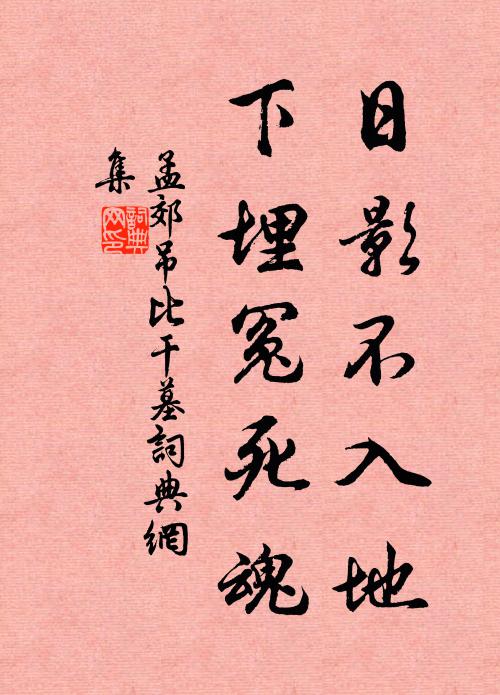 日影不入地
下埋冤死魂
孟郊吊比干墓詞典網
集
詞典网印